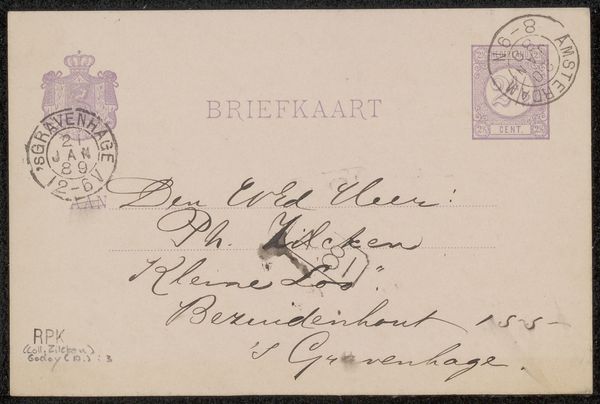 BRIEFKAART
AMSTERDAM
CENT.
'SGRAVENHAGE
21
JAN
89
12-6V
AAN
Den WEd Heer:
Ph. Zilcken
Kleine Loo".
Bezuidenhout 155-
's Gravenhage.
RPK
(coll. Zilcken)
Godoy (D.) : 3